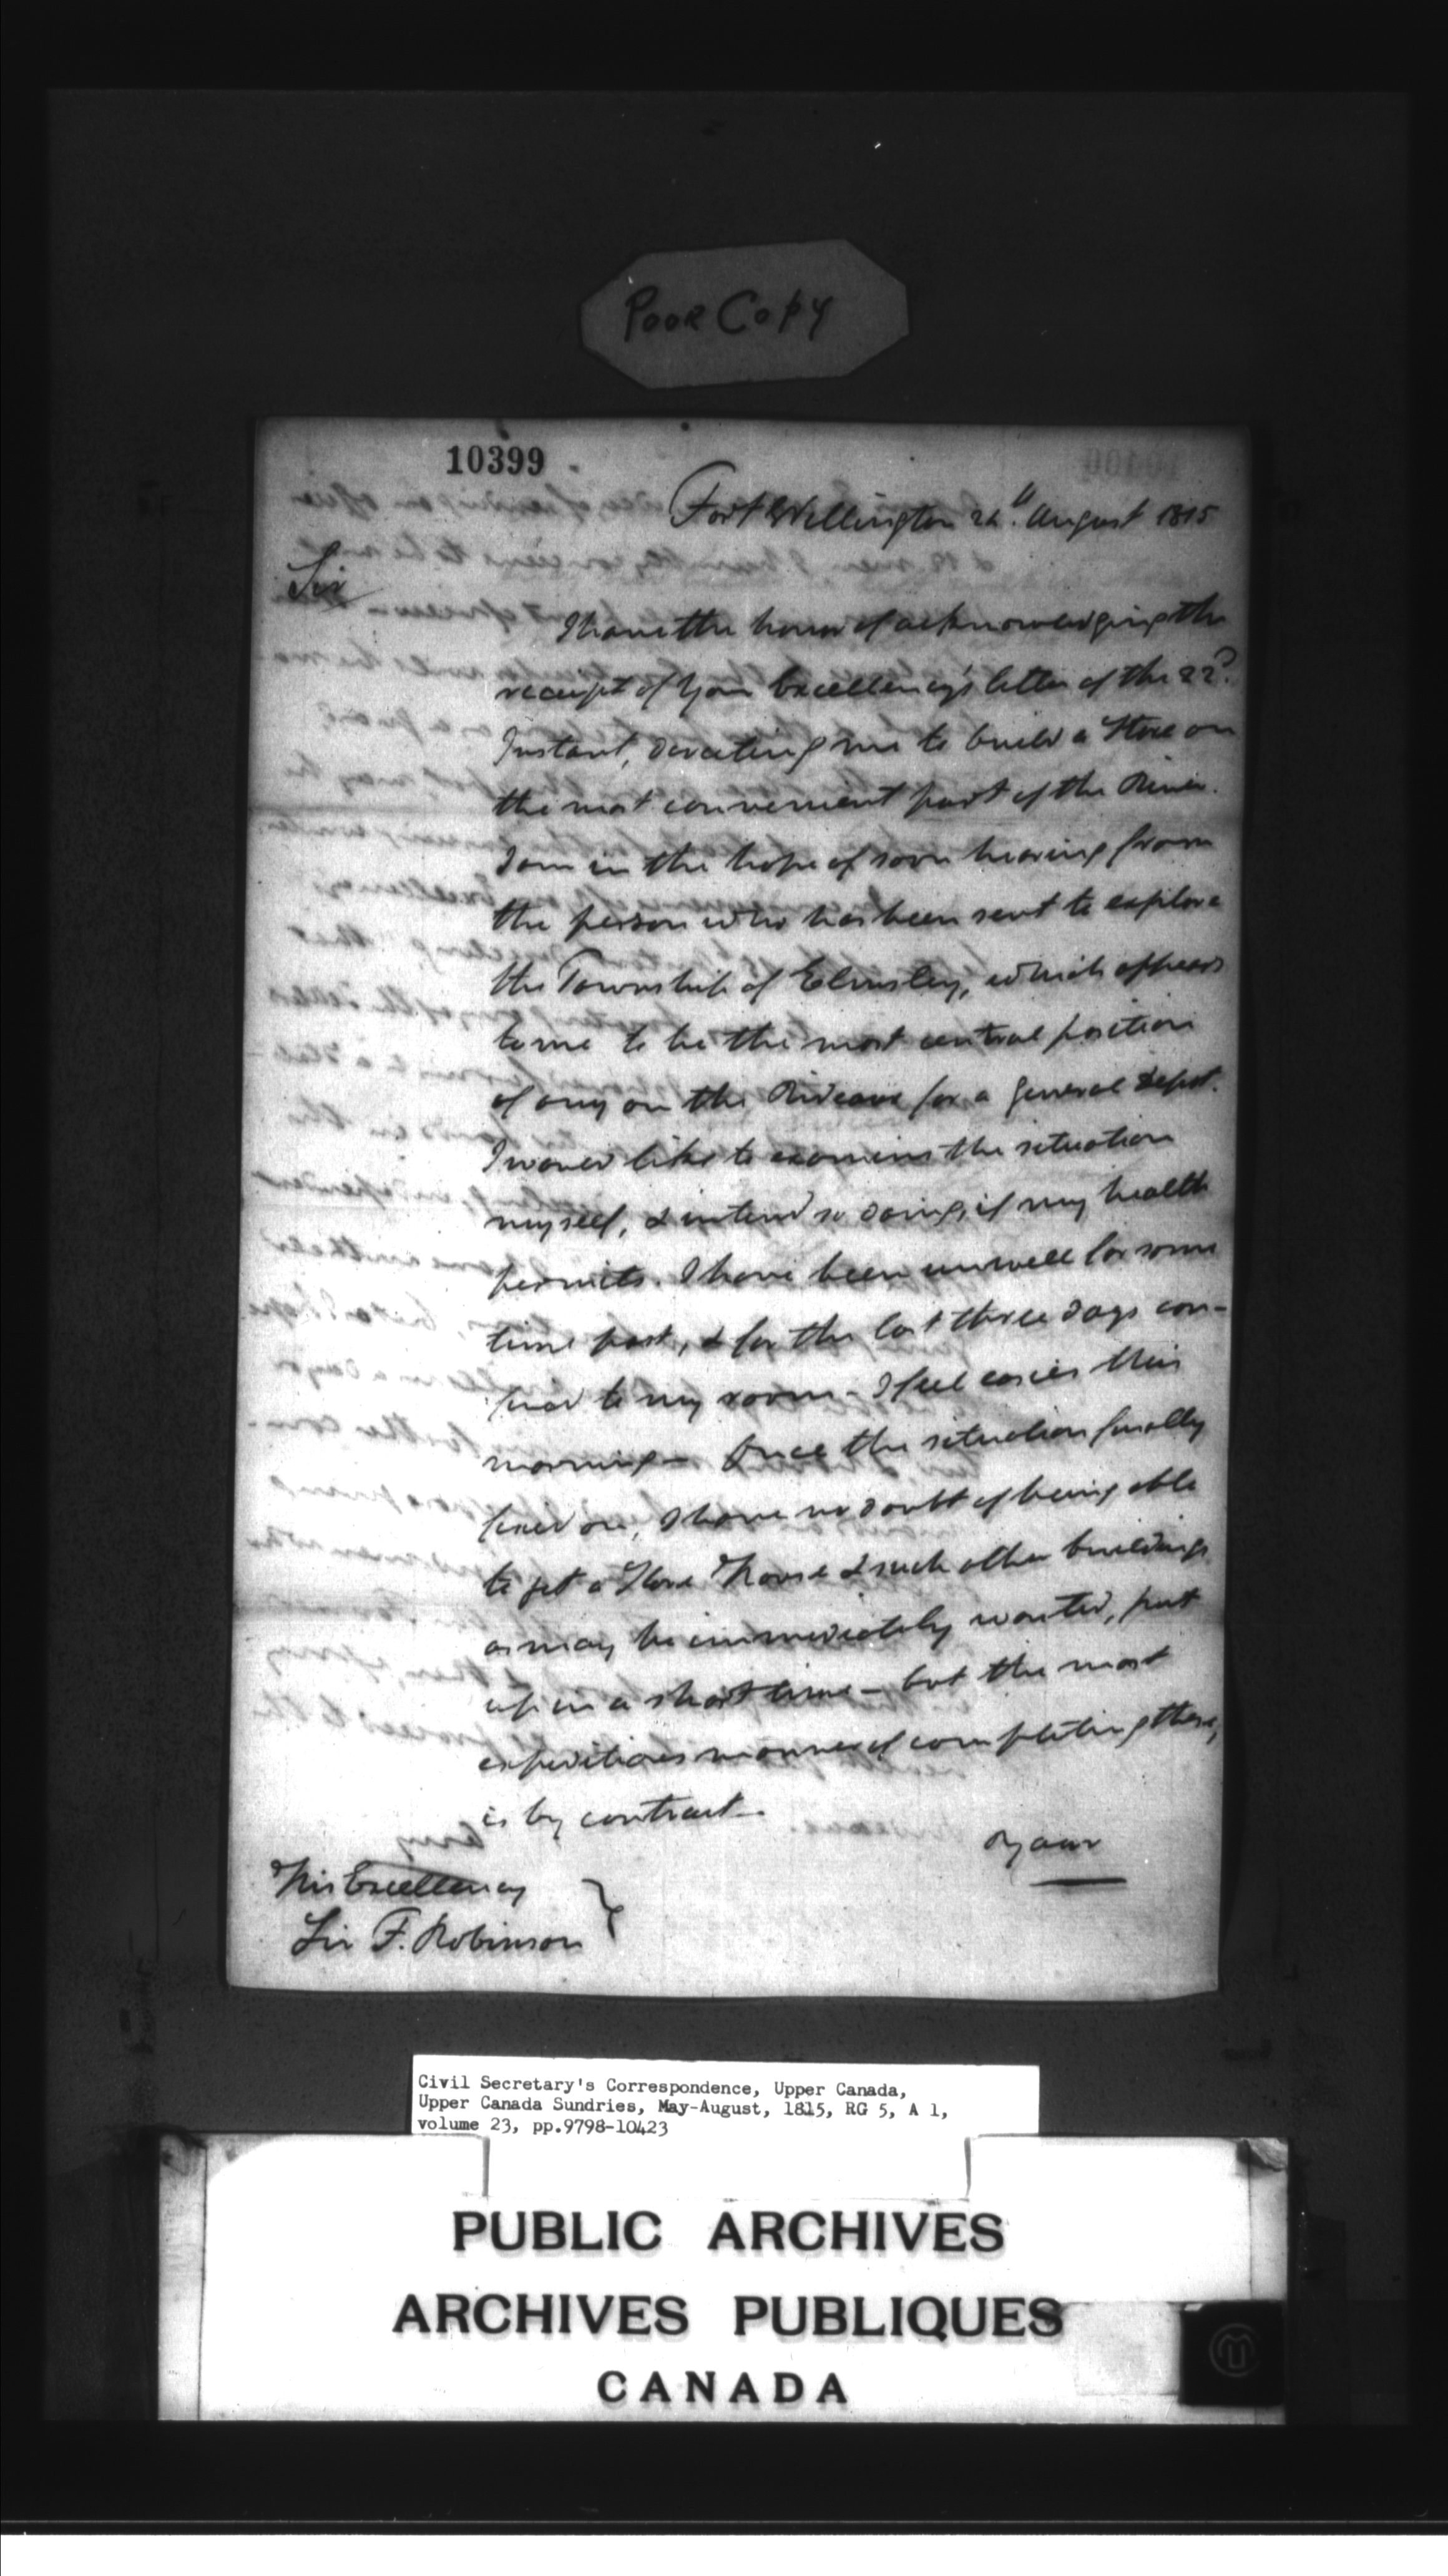 Poor Copy
10399
Fort Wellington August 1815
Sir
I have the honor of acknowledging the
receipt of Your Excellency's letter of the 22d.
Instant, directing me to build a Store on
the most convenient part of the River.
I am in the hope of soon hearing from
the person who has been sent to explore
the Township of Elmsley, which appears
to me to be the most central position
of any on the Rideau for a General Depot.
I would like to examine the situation
myself, & intend so doing, if my health
permits. I have been unwell for some
time past, & for the last three days con-
fined to my room - I feel easier this
morning - Once the situation finally
fixed on, I have no doubt of being able
to get a Store House & such other buildings
as may be immediately wanted, put
up in a short time - but the most
expeditious manner of completing these,
is by contract -
Your
His Excellency
Sir F. Robinson
Civil Secretary's Correspondence, Upper Canada,
Upper Canada Sundries, May-August, 1815, RG 5, A 1,
volume 23, pp.9798-10423
PUBLIC ARCHIVES
ARCHIVES PUBLIQUES
CANADA